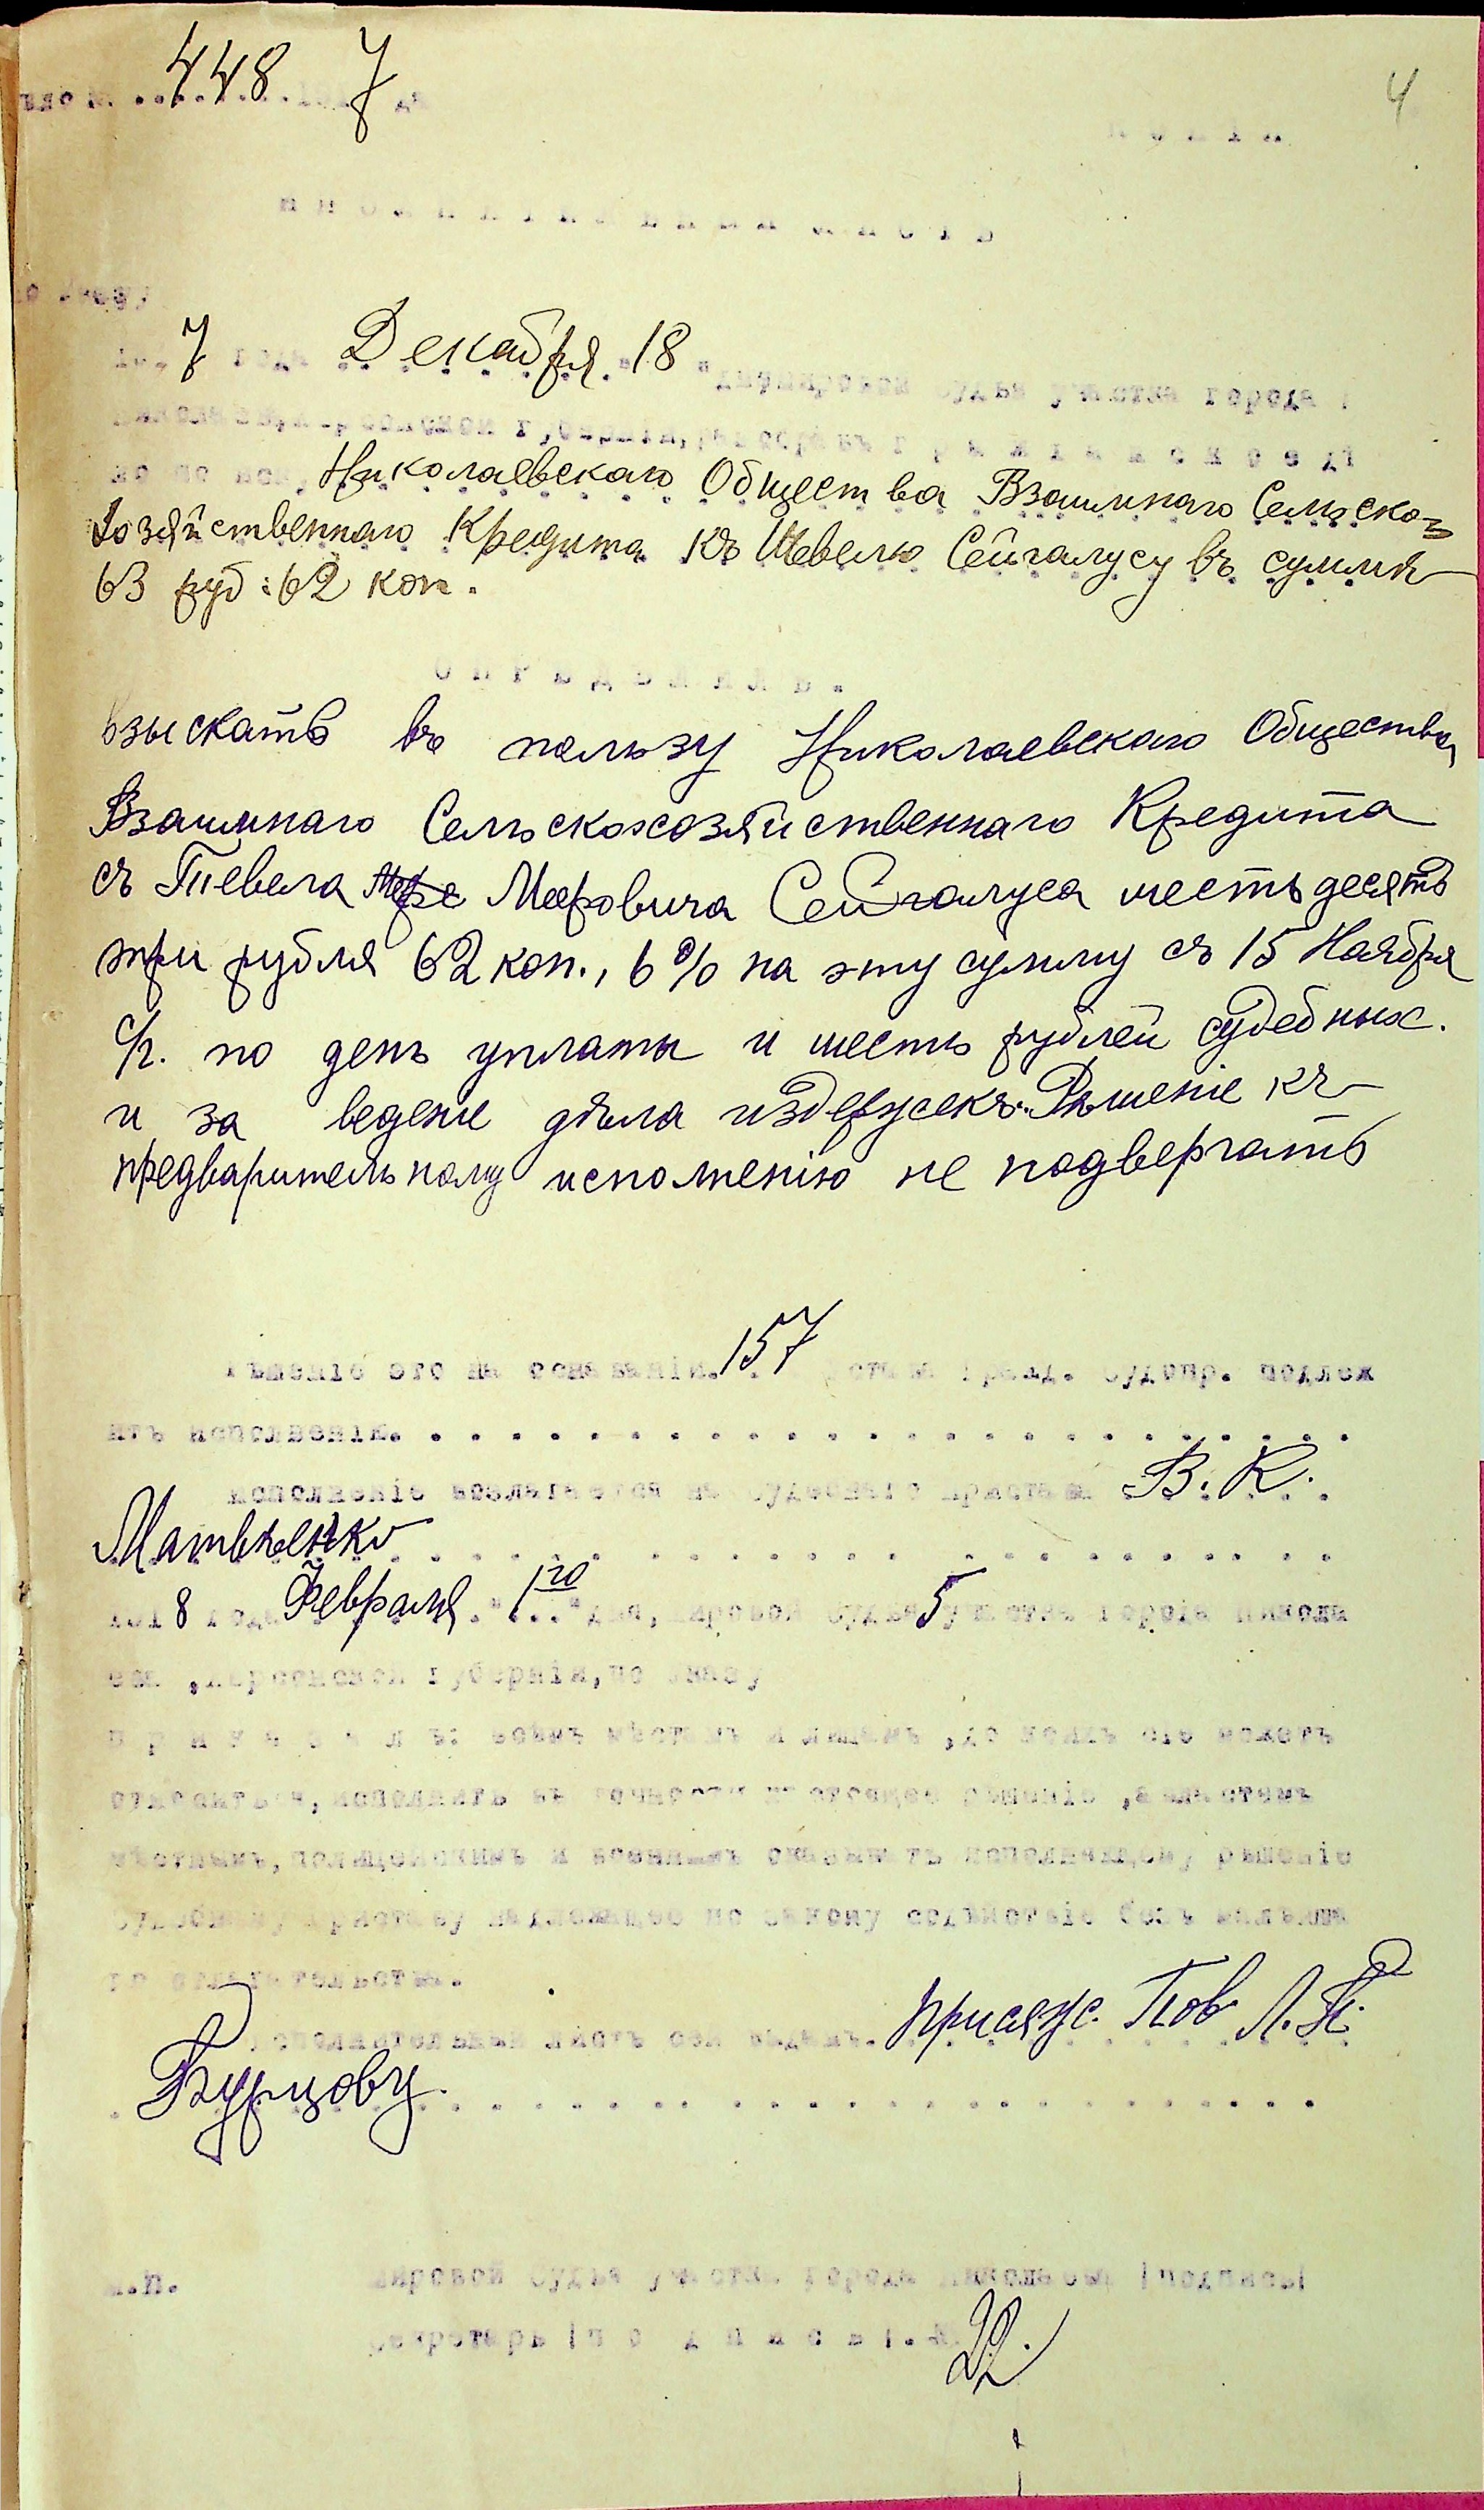 448 7
4
Копія
исполнительный листъ
7 года Декабря "18" дня мировой судья участка города
Николаевскаго Общества Взаимнаго Сельско-
хозяйственнаго Кредита къ Шевелю Сейгалусу въ суммѣ
63 руб: 62 коп.
взыскать въ пользу Николаевскаго Общества
Взаимнаго Сельскохозяйственнаго Кредита
съ Шевеля Мееровича Сейгалуса шестьдесятъ
три рубля 62 коп., 6% на эту сумму съ 15 Ноября
с/г. по день уплаты и шесть рублей судебных.
и за веденіе дѣла издержекъ. Рѣшеніе къ
предварительному исполненію не подвергать
Рѣшеніе это на основаніи 157 ст. уст. гражд. судопр. подлеж
итъ исполненію.
Исполненіе возлагается на судебнаго пристава В. К.
Матвѣенко
1918 года Февраля "1го" дня, мировой судья 5 участка города Никола
ева, Херсонской губерніи, по указу
приказалъ: всѣмъ мѣстамъ и лицамъ, до коихъ сіе можетъ
относиться, исполнить въ точности настоящее рѣшеніе, а властямъ
мѣстнымъ, полицейскимъ и военнымъ оказывать исполняющему рѣшеніе
судебному приставу надлежащее по закону содѣйствіе безъ малѣйша
го отлагательства.
Исполнительный листъ сей выданъ. присяж. Пов Л. П.
Бурцову.
м.п. Мировой Судья участка города Николаева /подпись/
секретарь /п о д п и с ь/.